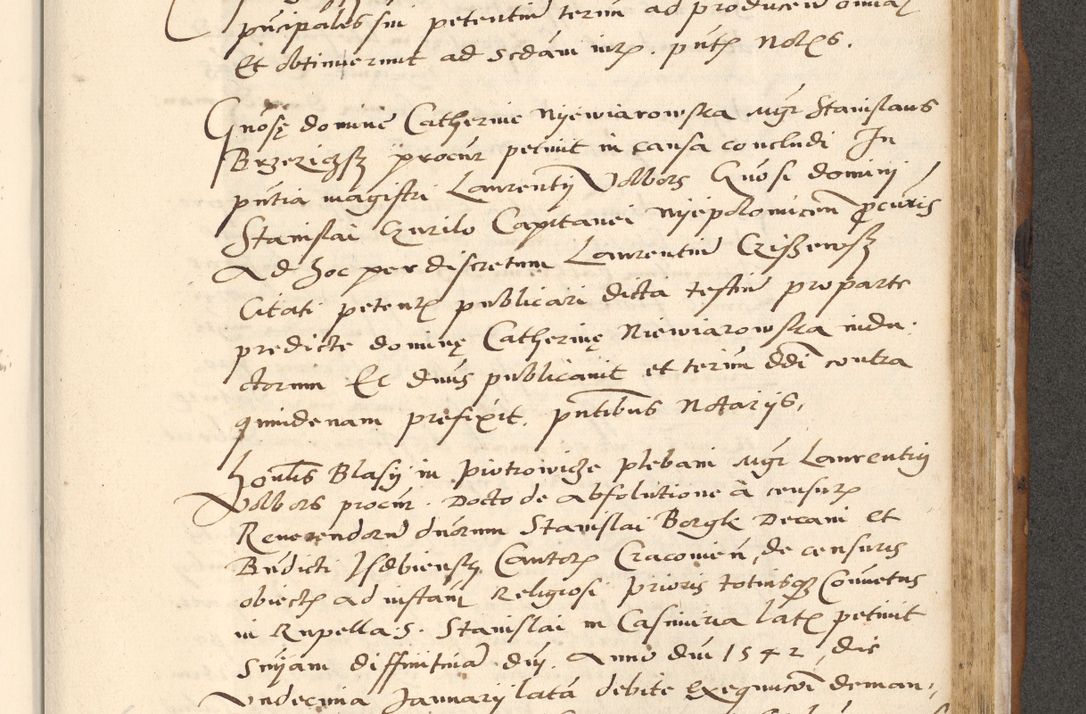 principales sui petentium terim ad producen omia
Et obtinuerunt ad Scdam iurx. pntx Notxs.
Gnosę domine Catherine Nyewiarowska Mgr Stanislaus
Brzeziczsky procur petiuit in causa concludi In
pntia magistri Laurentij Volbors Gnosi dominj
Stanislai Czurilo Capitanei Nyepolomicen procuris
Ad hoc per discretum Laurentiu Cziszewsky
Citati petentx publicari dicta testiu pro parte
predicte dominę Catherinę Niewiarowska indu.
ctorum Et dnus publicauit et terim ddi contra
quindenam prefixit. pntibus Notarijs.
honlis Blasij in Piotrowicze plebani Mgr Laurentij
Volbors procur. Docto de absolutione à censurx
Reuerendoru dnorum Stanislai Borgk Decani Et
Bndicti Isdbiensky Cantorx Cracouien, de censuris
obiectx ad instan Religiosi Prioris totiusqz Conuetus
in Rupella S. Stanislai in Casimiria latx petiuit
Snyam diffinitiua dnj. Anno Dni 1542, die
Vndecima Januarij lata debite exequucoi deman,